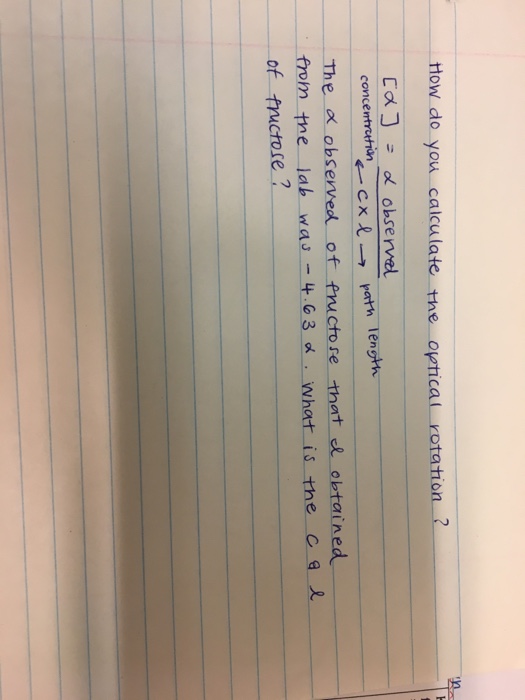 How do you calculate the optical rotation?
[α] = α observed
concentration ← c x l → path length
The α observed of fructose that I obtained
from the lab was - 4.63 α. What is the c & l
of fructose?